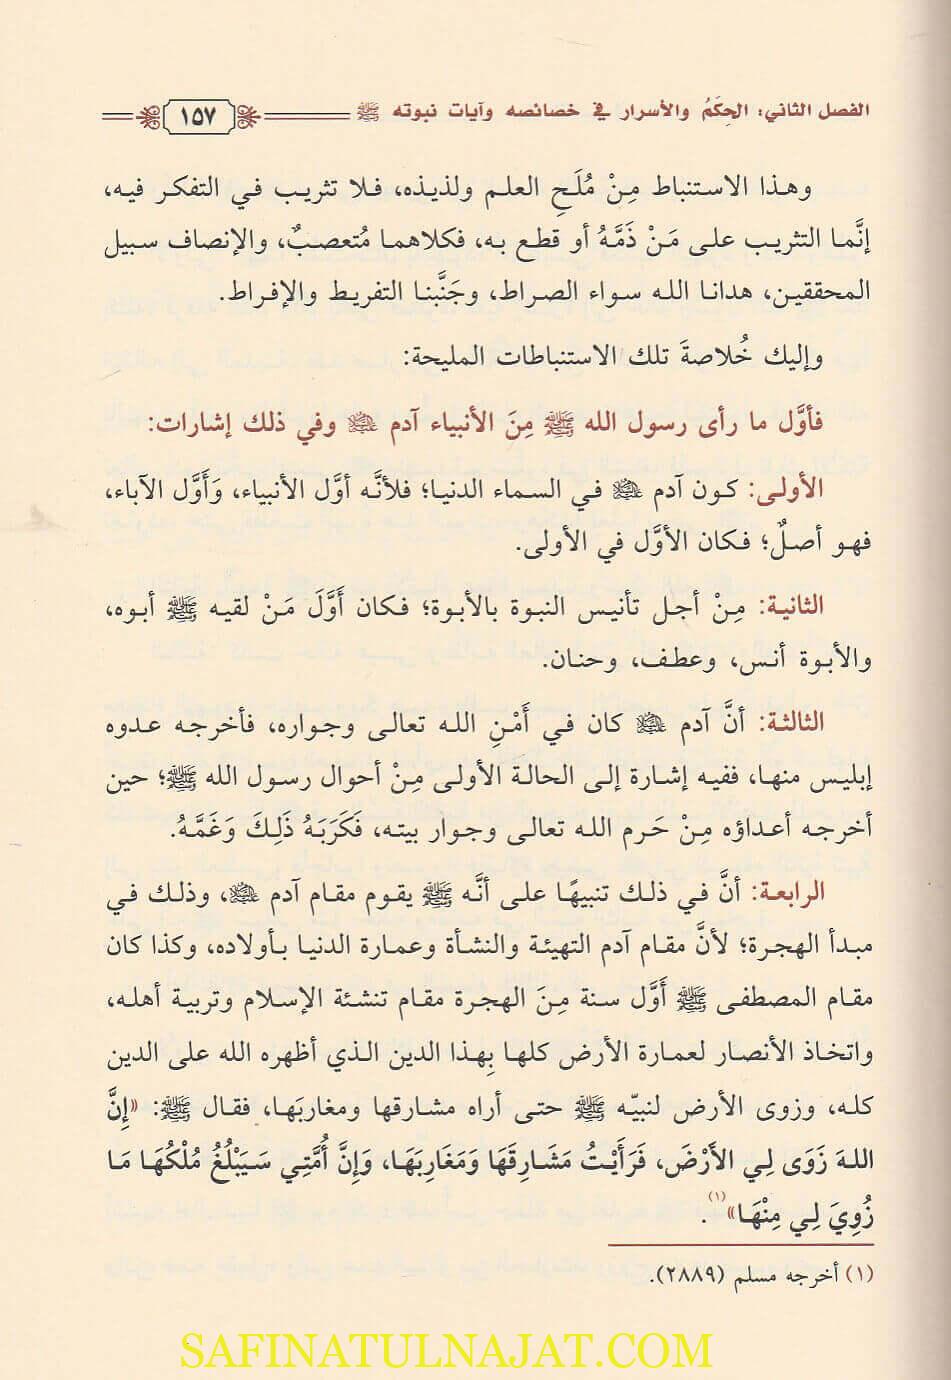 الفصل الثاني: الحِكَمُ والأسرار في خصائصه وآيات نبوته ﷺ
١٥٧
وهذا الاستنباط مِنْ مُلَحِ العلم ولذيذه، فلا تثريب في التفكر فيه،
إنَّما التثريب على مَنْ ذَمَّهُ أو قطع به، فكلاهما مُتعصبٌ، والإنصاف سبيل
المحققين، هدانا الله سواء الصراط، وجَنَّبنا التفريط والإفراط.
وإليك خُلاصةَ تلك الاستنباطات المليحة:
فأوَّل ما رأى رسول الله ﷺ مِنَ الأنبياء آدم عليه السلام وفي ذلك إشارات:
الأولى: كون آدم عليه السلام في السماء الدنيا؛ فلأنَّه أوَّل الأنبياء، وَأَوَّل الآباء،
فهو أصلٌ؛ فكان الأوَّل في الأولى.
الثانية: مِنْ أجل تأنيس النبوة بالأبوة؛ فكان أَوَّلَ مَنْ لقيه ﷺ أبوه،
والأبوة أنس، وعطف، وحنان.
الثالثة: أنَّ آدم عليه السلام كان في أَمْنِ الله تعالى وجواره، فأخرجه عدوه
إبليس منها، ففيه إشارة إلى الحالة الأولى مِنْ أحوال رسول الله ﷺ؛ حين
أخرجه أعداؤه مِنْ حَرم الله تعالى وجوار بيته، فَكَرَبَهُ ذَلِكَ وَغَمَّهُ.
الرابعة: أنَّ في ذلك تنبيهًا على أنَّه ﷺ يقوم مقام آدم عليه السلام، وذلك في
مبدأ الهجرة؛ لأنَّ مقام آدم التهيئة والنشأة وعمارة الدنيا بأولاده، وكذا كان
مقام المصطفى ﷺ أَوَّل سنة مِنَ الهجرة مقام تنشئة الإسلام وتربية أهله،
واتخاذ الأنصار لعمارة الأرض كلها بِهذا الدين الذي أظهره الله على الدين
كله، وزوى الأرض لنبيّه ﷺ حتى أراه مشارقها ومغاربَها، فقال ﷺ: «إِنَّ
اللهَ زَوَى لِي الأَرْضَ، فَرَأَيْتُ مَشَارِقَهَا وَمَغَارِبَهَا، وَإِنَّ أُمَّتِي سَيَبْلُغُ مُلْكُهَا مَا
زُوِيَ لِي مِنْهَا»(١).
(١) أخرجه مسلم (٢٨٨٩).
SAFINATULNAJAT.COM